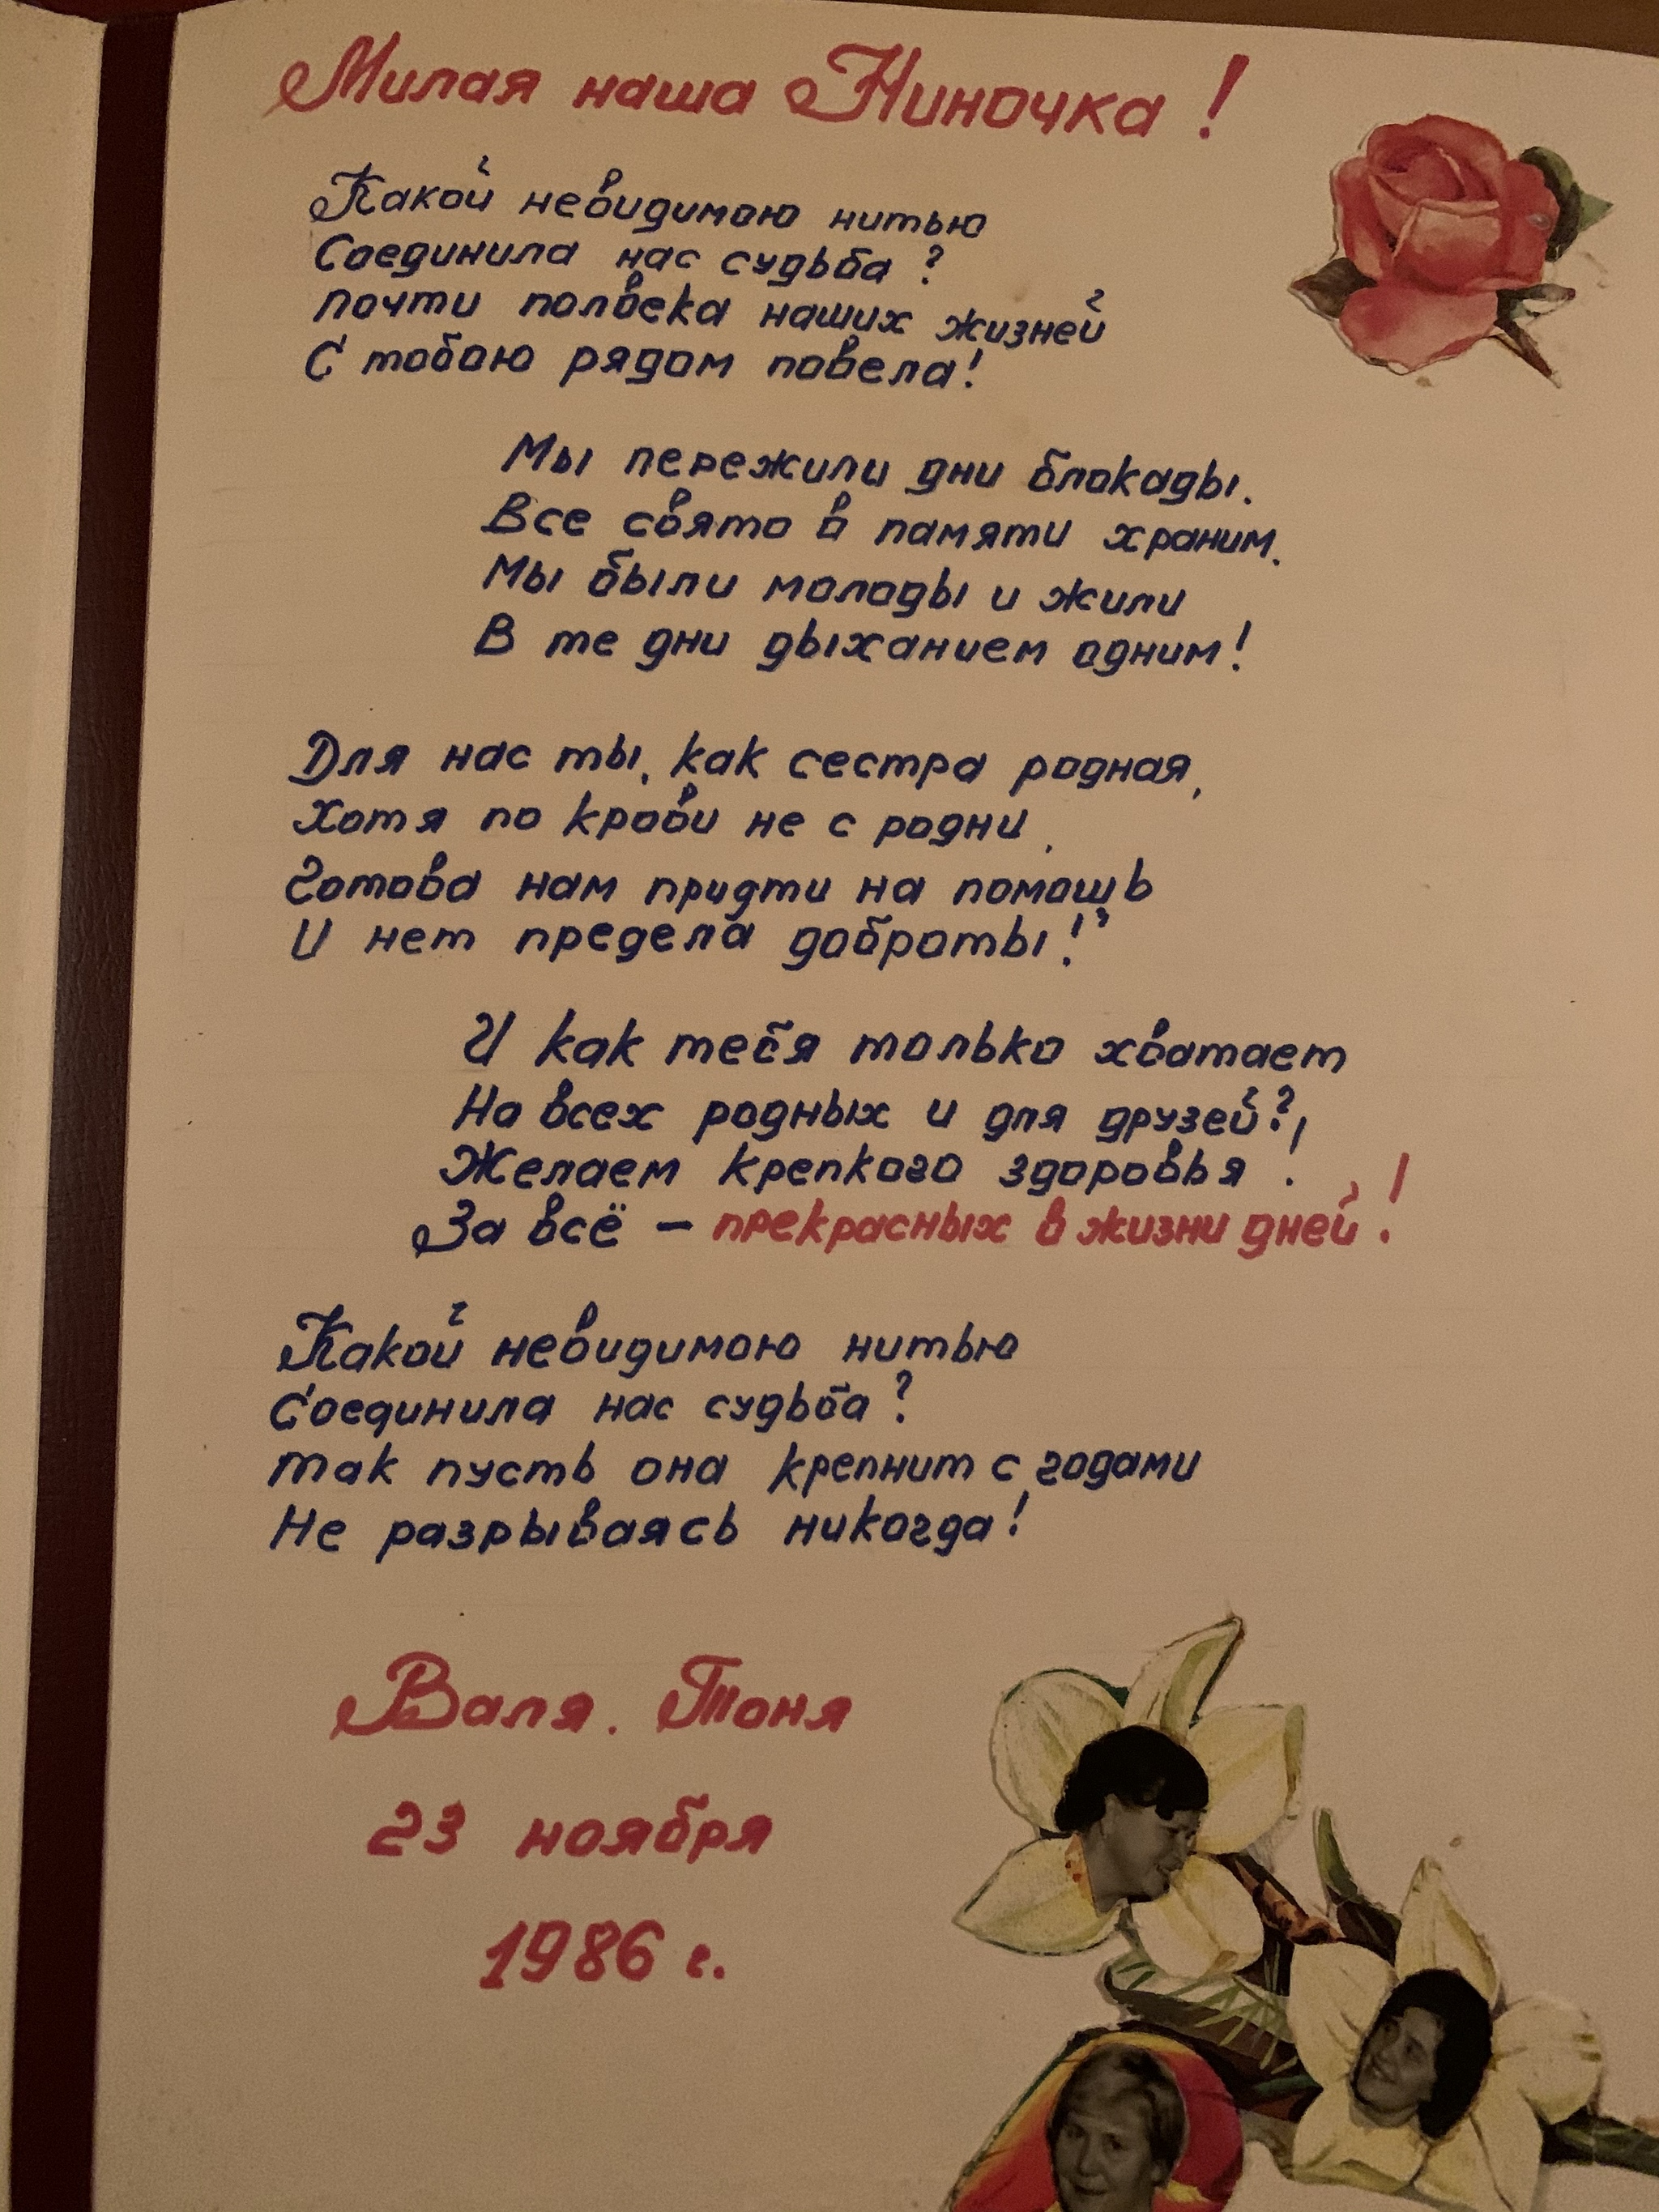 Милая наша Ниночка!
Какой невидимою нитью
Соединила нас судьба?
Почти полвека наших жизней
С тобою рядом повела!
Мы пережили дни блокады.
Все свято в памяти храним.
Мы были молоды и жили
В те дни дыханием одним!
Для нас ты, как сестра родная,
Хотя по крови не с родни,
Готова нам придти на помощь
И нет предела доброты!
И как тебя только хватает
На всех родных и для друзей?
Желаем крепкого здоровья!
За всё – прекрасных в жизни дней!
Какой невидимою нитью
Соединила нас судьба?
Так пусть она крепнит с годами
Не разрываясь никогда!
Валя. Тоня
23 ноября
1986 г.